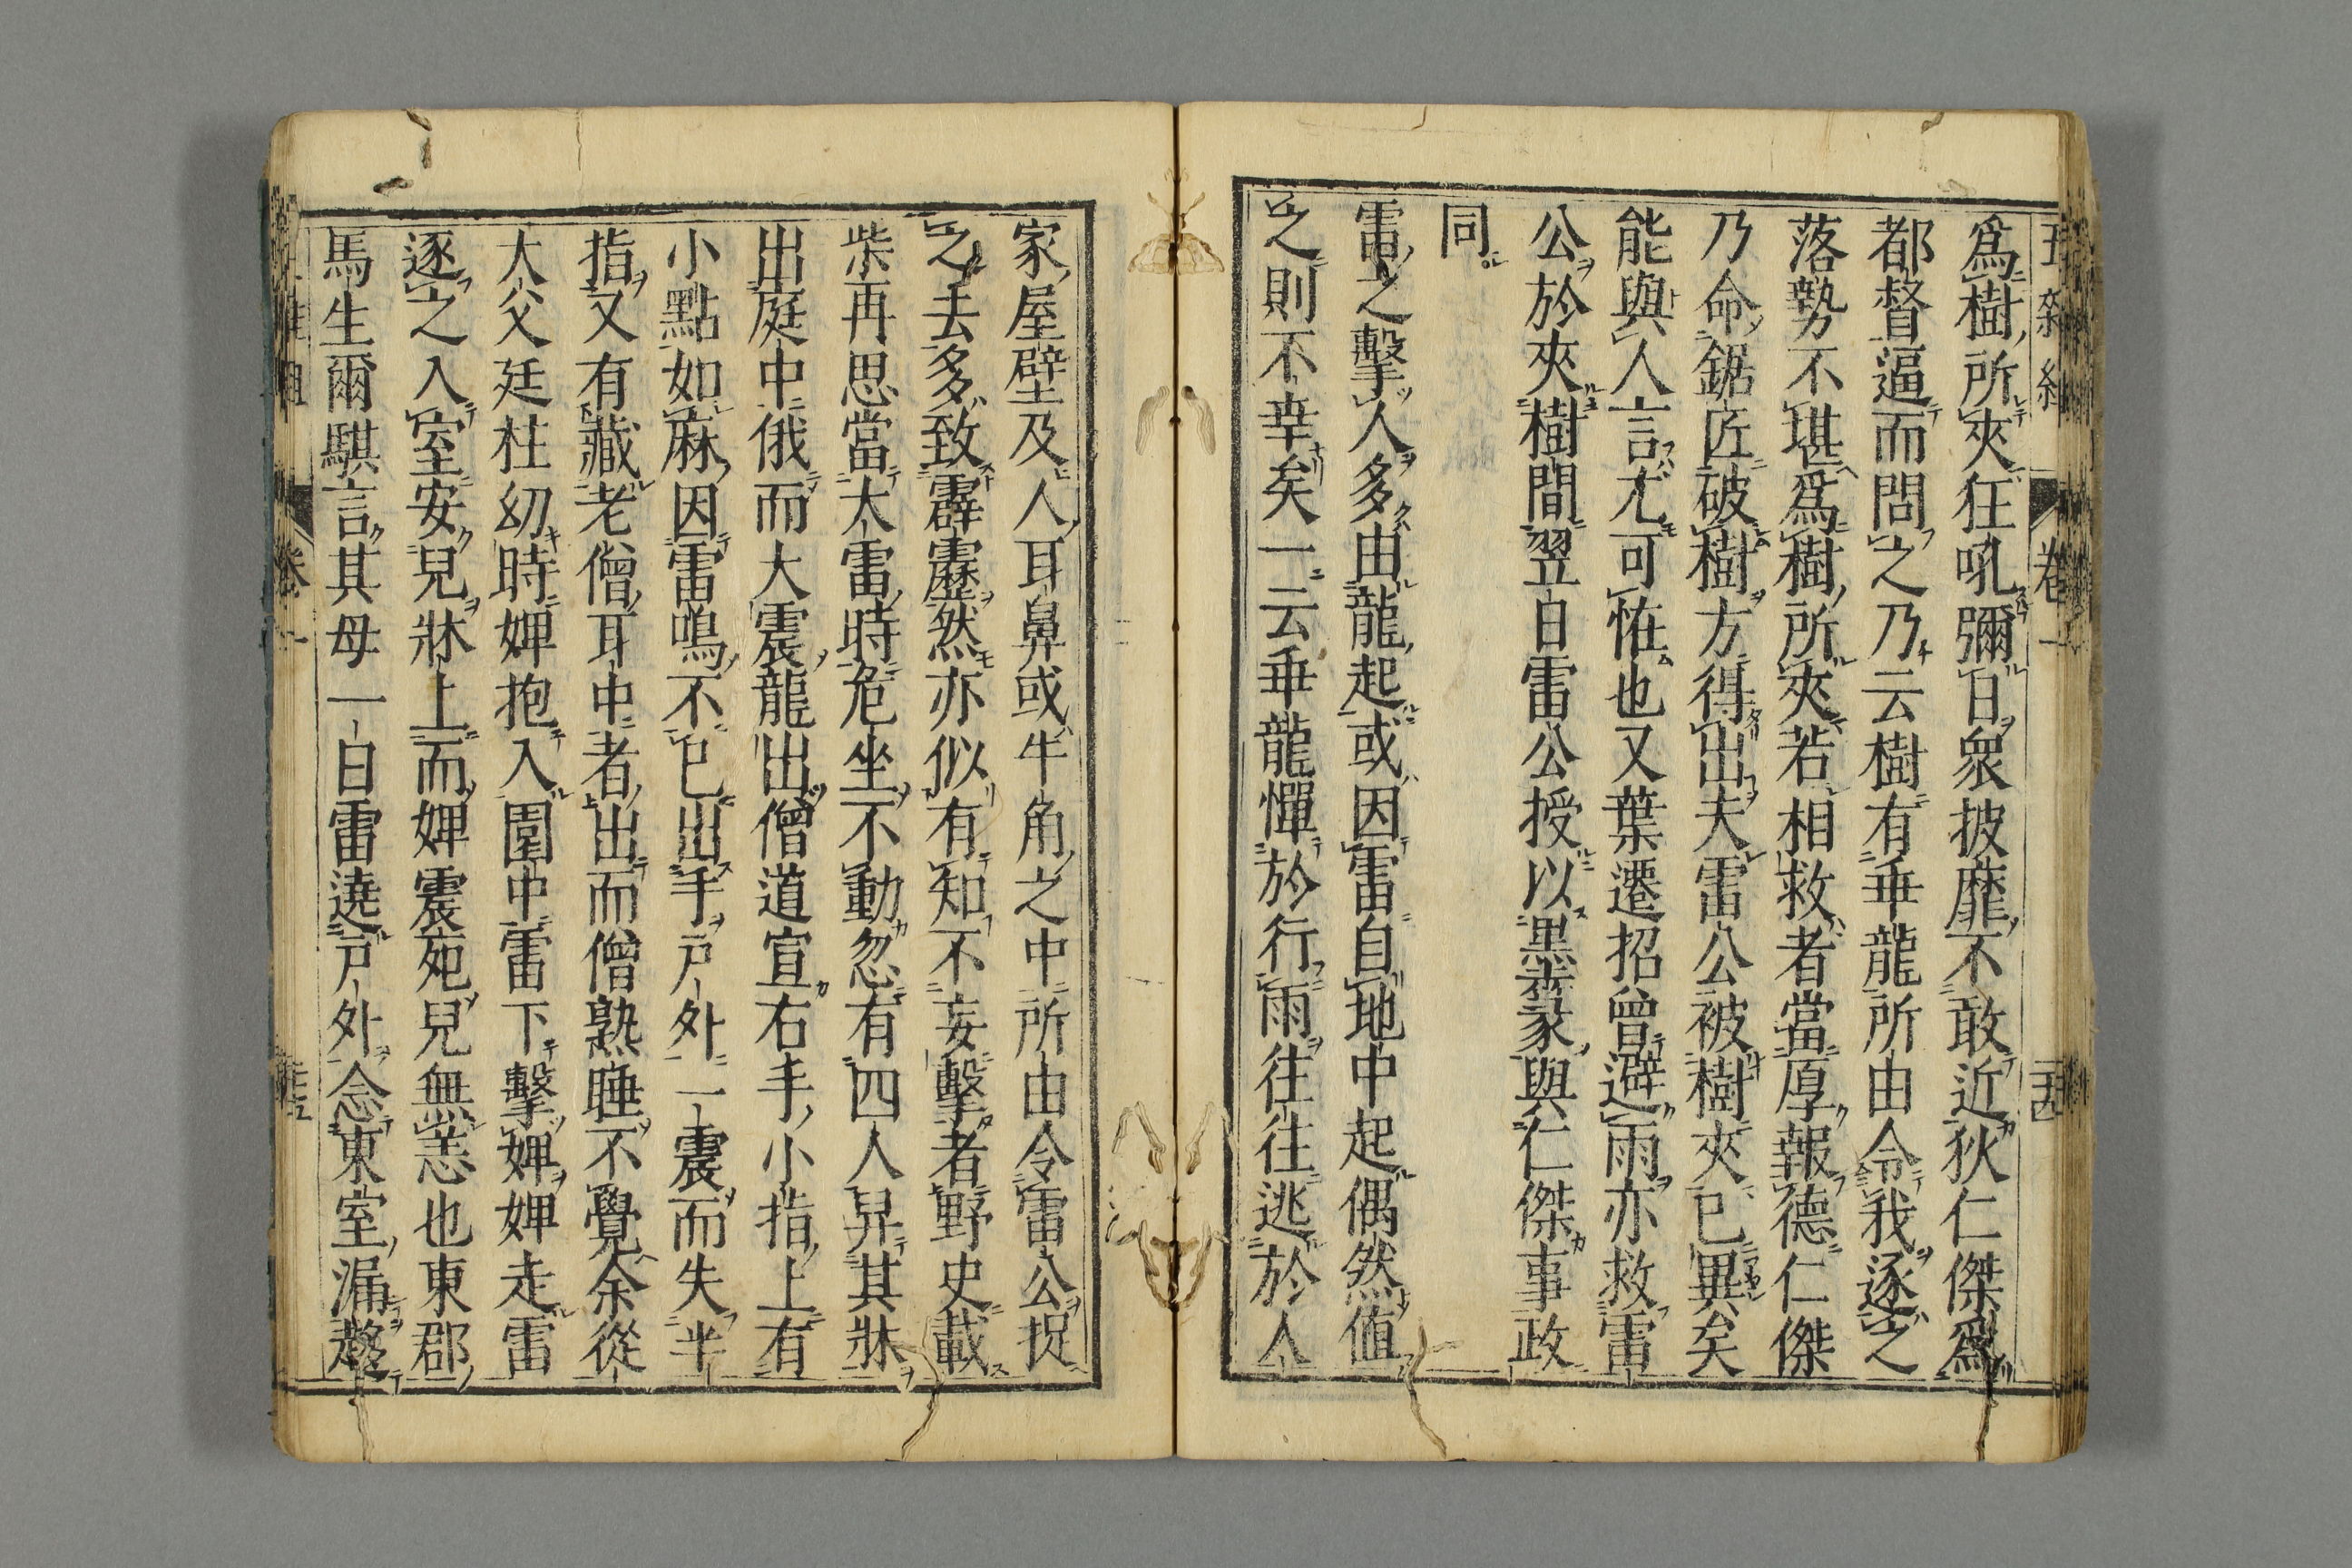 五雜組 卷一
爲樹所夾狂吼彌日衆披靡不敢近狄仁傑爲
都督逼而問之乃云樹有乖龍所由令我逐之
落勢不堪爲樹所夾若相救者當厚報德仁傑
乃命鋸匠破樹方得出夫雷公被樹夾已異矣
能與人言尤可恠也又葉遷招曾避雨亦救雷
公於夾樹間翌日雷公授以墨篆與仁傑事政
同
雷之擊人多由龍起或因雷自地中起偶然値
之則不幸矣一云乖龍憚於行雨往往逃於人
家屋壁及人耳鼻或牛角之中所由令雷公捉
之去多致霹靂然亦似有知不妄擊者野史載
柴再思當大雷時危坐不動忽有四人舁其牀
出庭中俄而大震龍出僧道宣右手小指上有
小點如麻因雷鳴不已出手戶外一震而失半
指又有藏老僧耳中者出而僧熟睡不覺余從
大父廷柱幼時婢抱入圍中雷下擊婢婢走雷
逐之入室安兒牀上而婢震死兒無恙也東郡
馬生爾騏言其母一日雷遶戶外念東室漏趍
卷一